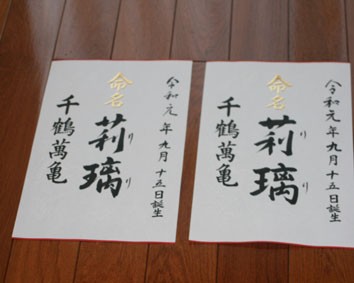 令和元年九月十五日誕生
命名
莉璃
りり
千鶴萬亀
令和元年九月十五日誕生
命名
莉璃
りり
千鶴萬亀